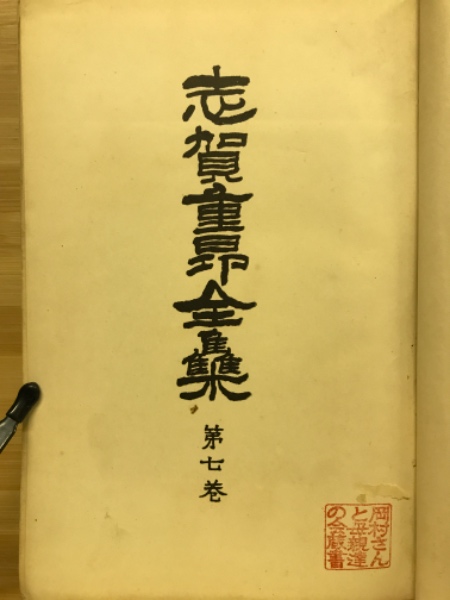 志賀重昂全集
第七巻
岡村さん
と母親達
の会蔵書